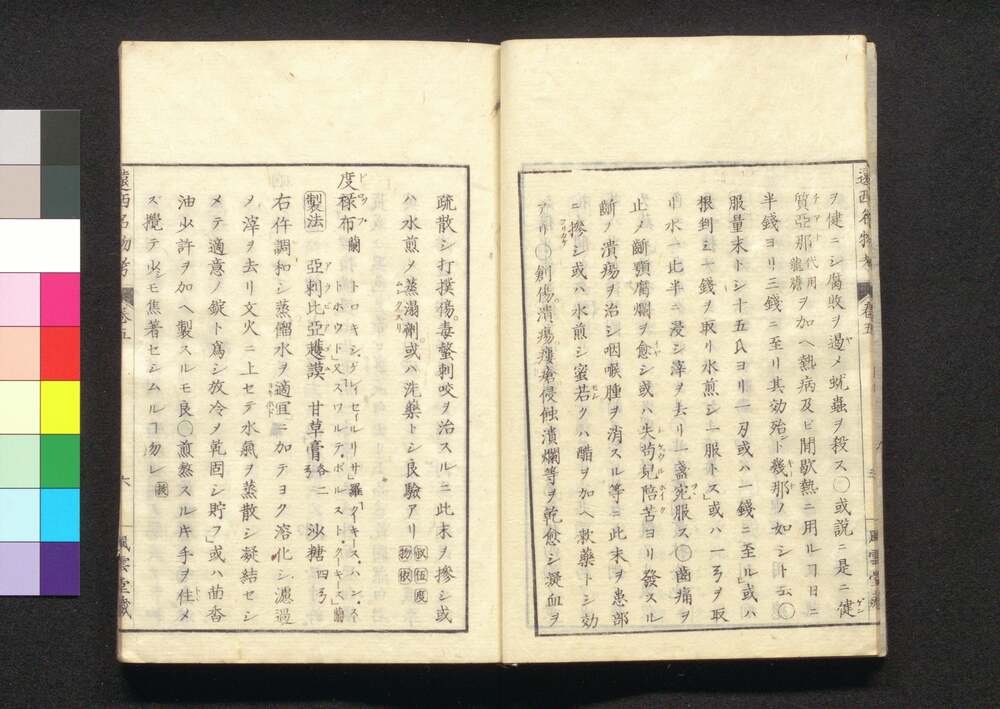 ヲ健ニシ腐敗ヲ過メ蚘蟲ヲ殺ス○或説ニ是ニ健
質亞那代用龍膽ヲ加ヘ熱病及ヒ間歇熱ニ用ルヿ日ニ
半錢ヨリ三錢ニ至リ其効殆ント幾那ノ如シト云○
服量末トシ十五氏ヨリ一刃或ハ一錢ニ至ル」或ハ
根剉ミ一錢ヲ取リ水煎シ一服トス」或ハ一ヲ取
リ水一此半ニ浸シ滓ヲ去リ一盞宛服ス○齒痛ヲ
止メ齗腐爛ヲ愈シ或ハ失苟兒陪苦ヨリ發スル
齗ノ潰瘍ヲ治シ咽喉腫ヲ消スル等ニ此末ヲ患部
ニ摻シ或ハ水煎シ蜜若クハ醋ヲ加ヘ軟藥トシ効
アリ○創傷潰瘍瘻瘡侵蝕潰爛等ヲ乾愈シ凝血ヲ
疏散シ打撲傷毒螫刺咬ヲ治スルニ此末ヲ摻シ或
ハ水煎メ蒸溻劑或ハ洗藥トシ良驗アリ
度祿布蘭
製法 亞剌比亞護謨 甘草膏各二 沙糖四
右件調和シ蒸餾水ヲ適宜ニ加テヨク溶化シ濾過
メ滓ヲ去リ文火ニ上セテ水氣ヲ蒸散シ凝結セシ
メテ適意ノ錠ト爲シ放冷メ乾固シ貯フ」或ハ茴香
油少許ヲ加ヘ製スルモ良○煎熬スル片手ヲ住メ
ス攪テ少シモ焦著セシムルヿ勿レ
遠西名物考 卷五 六 風雲堂藏